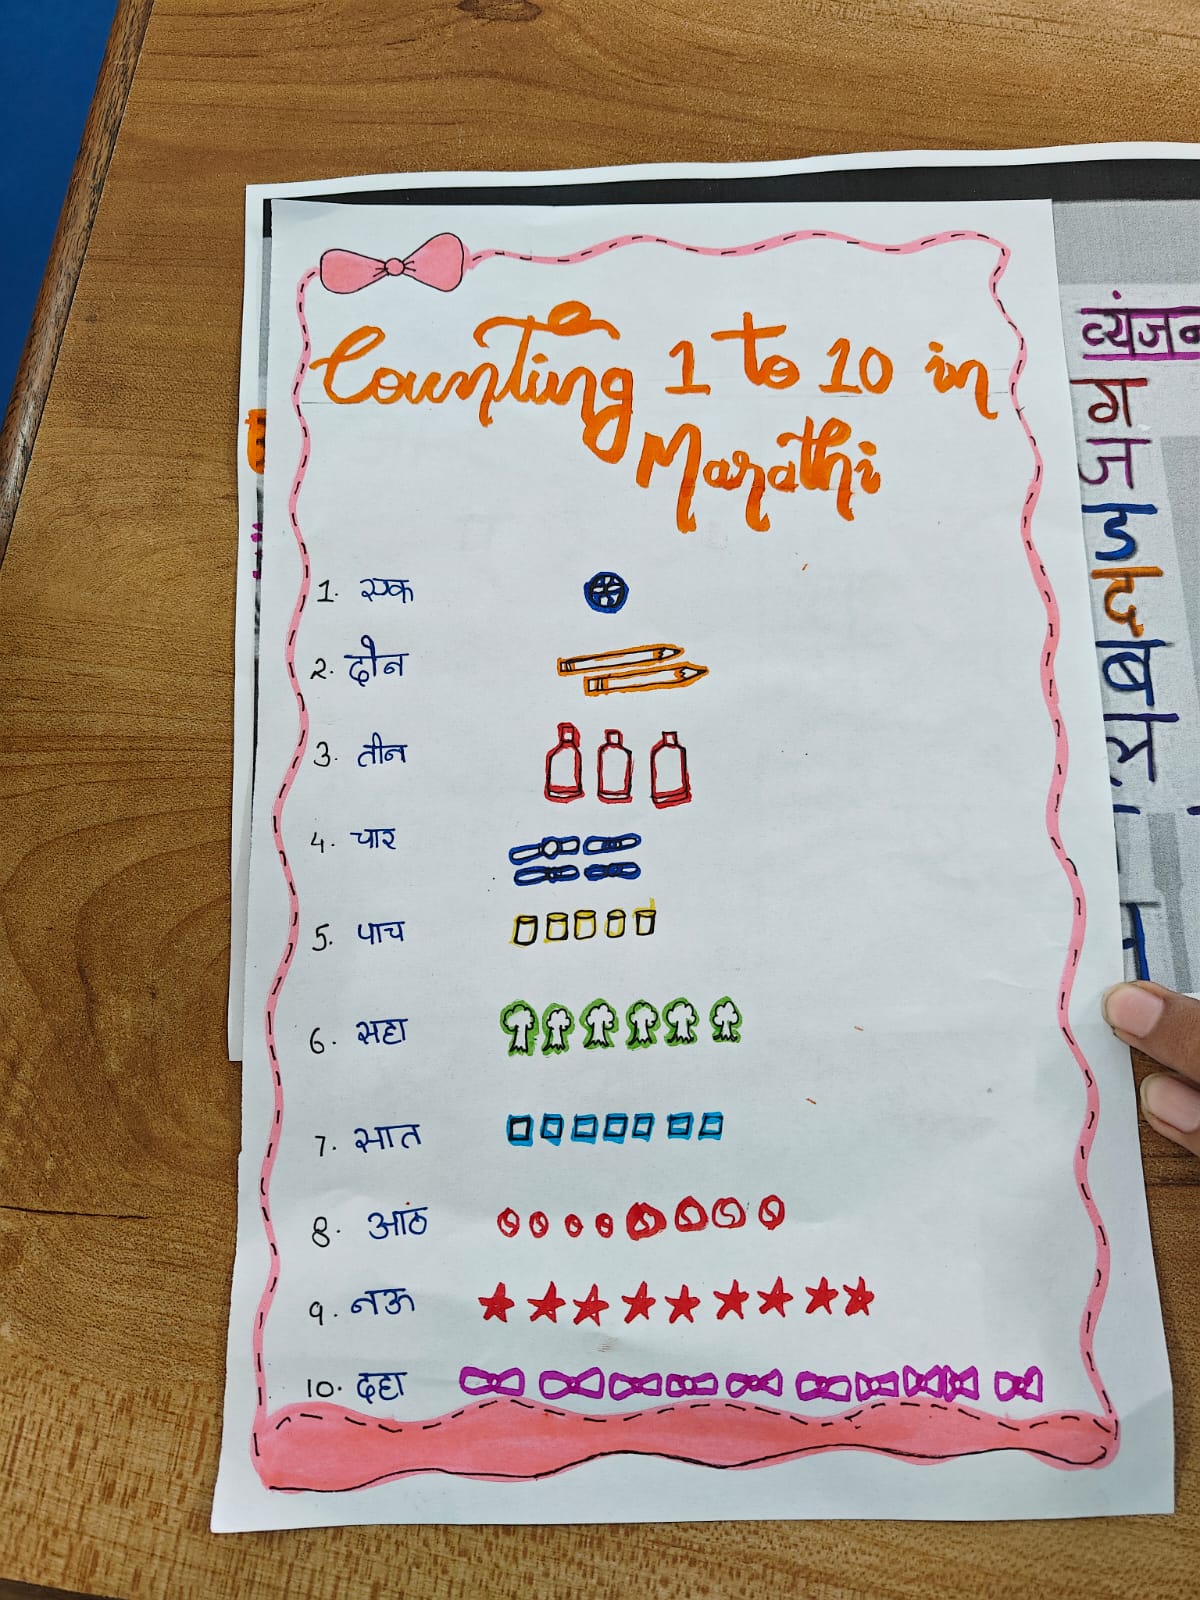 Counting 1 to 10 in
Marathi
1. एक
2. दोन
3. तीन
4. चार
5. पाच
6. सहा
7. सात
8. आठ
9. नऊ
10. दहा
व्यंजन
ग
ज
ब